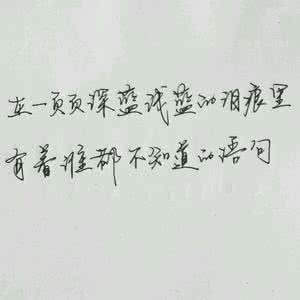 在一页页深蓝浅蓝的泪痕里
有着谁都不知道的语句